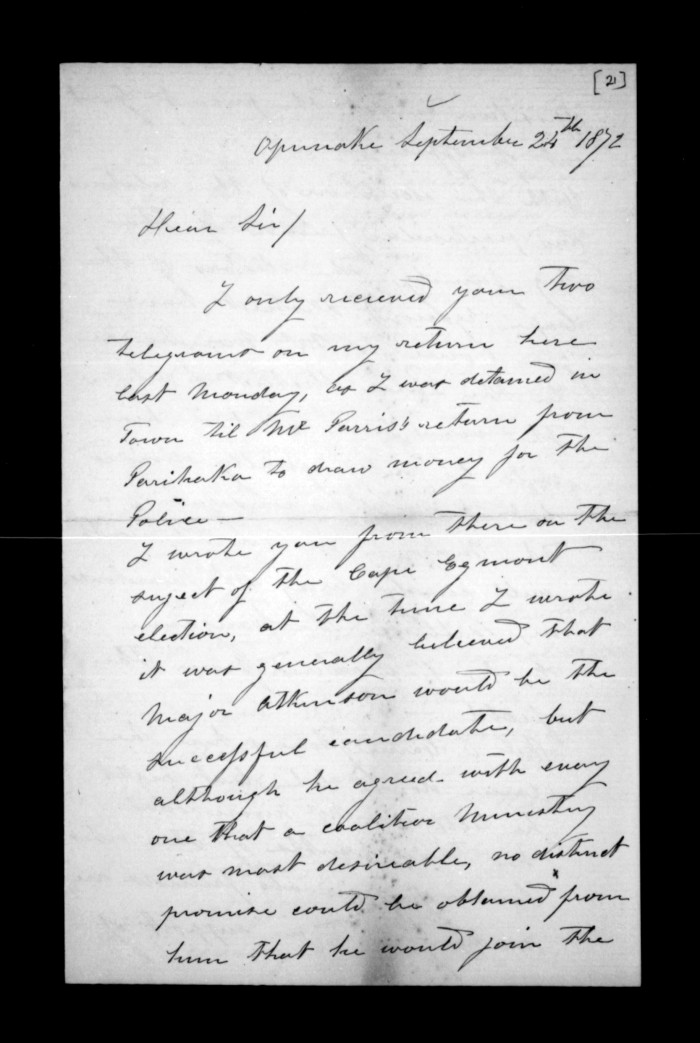 [21]
Opunake September 24th 1872
Dear Sir/
I only recieved your two
telegrams on my return here
last Monday, as I was detained in
Town til Mr Parris's return from
Parihaka to draw money for the
Police —
I wrote you from there on the
sugect of the Cape Egmont
election, at the time I wrote
it was generally believed that
Major Atkinson would be the
successful candidate, but
although he agreed with every
one that a coalition Ministry
was most desireable, no distinct
promise could be obtained from
him that he would join the